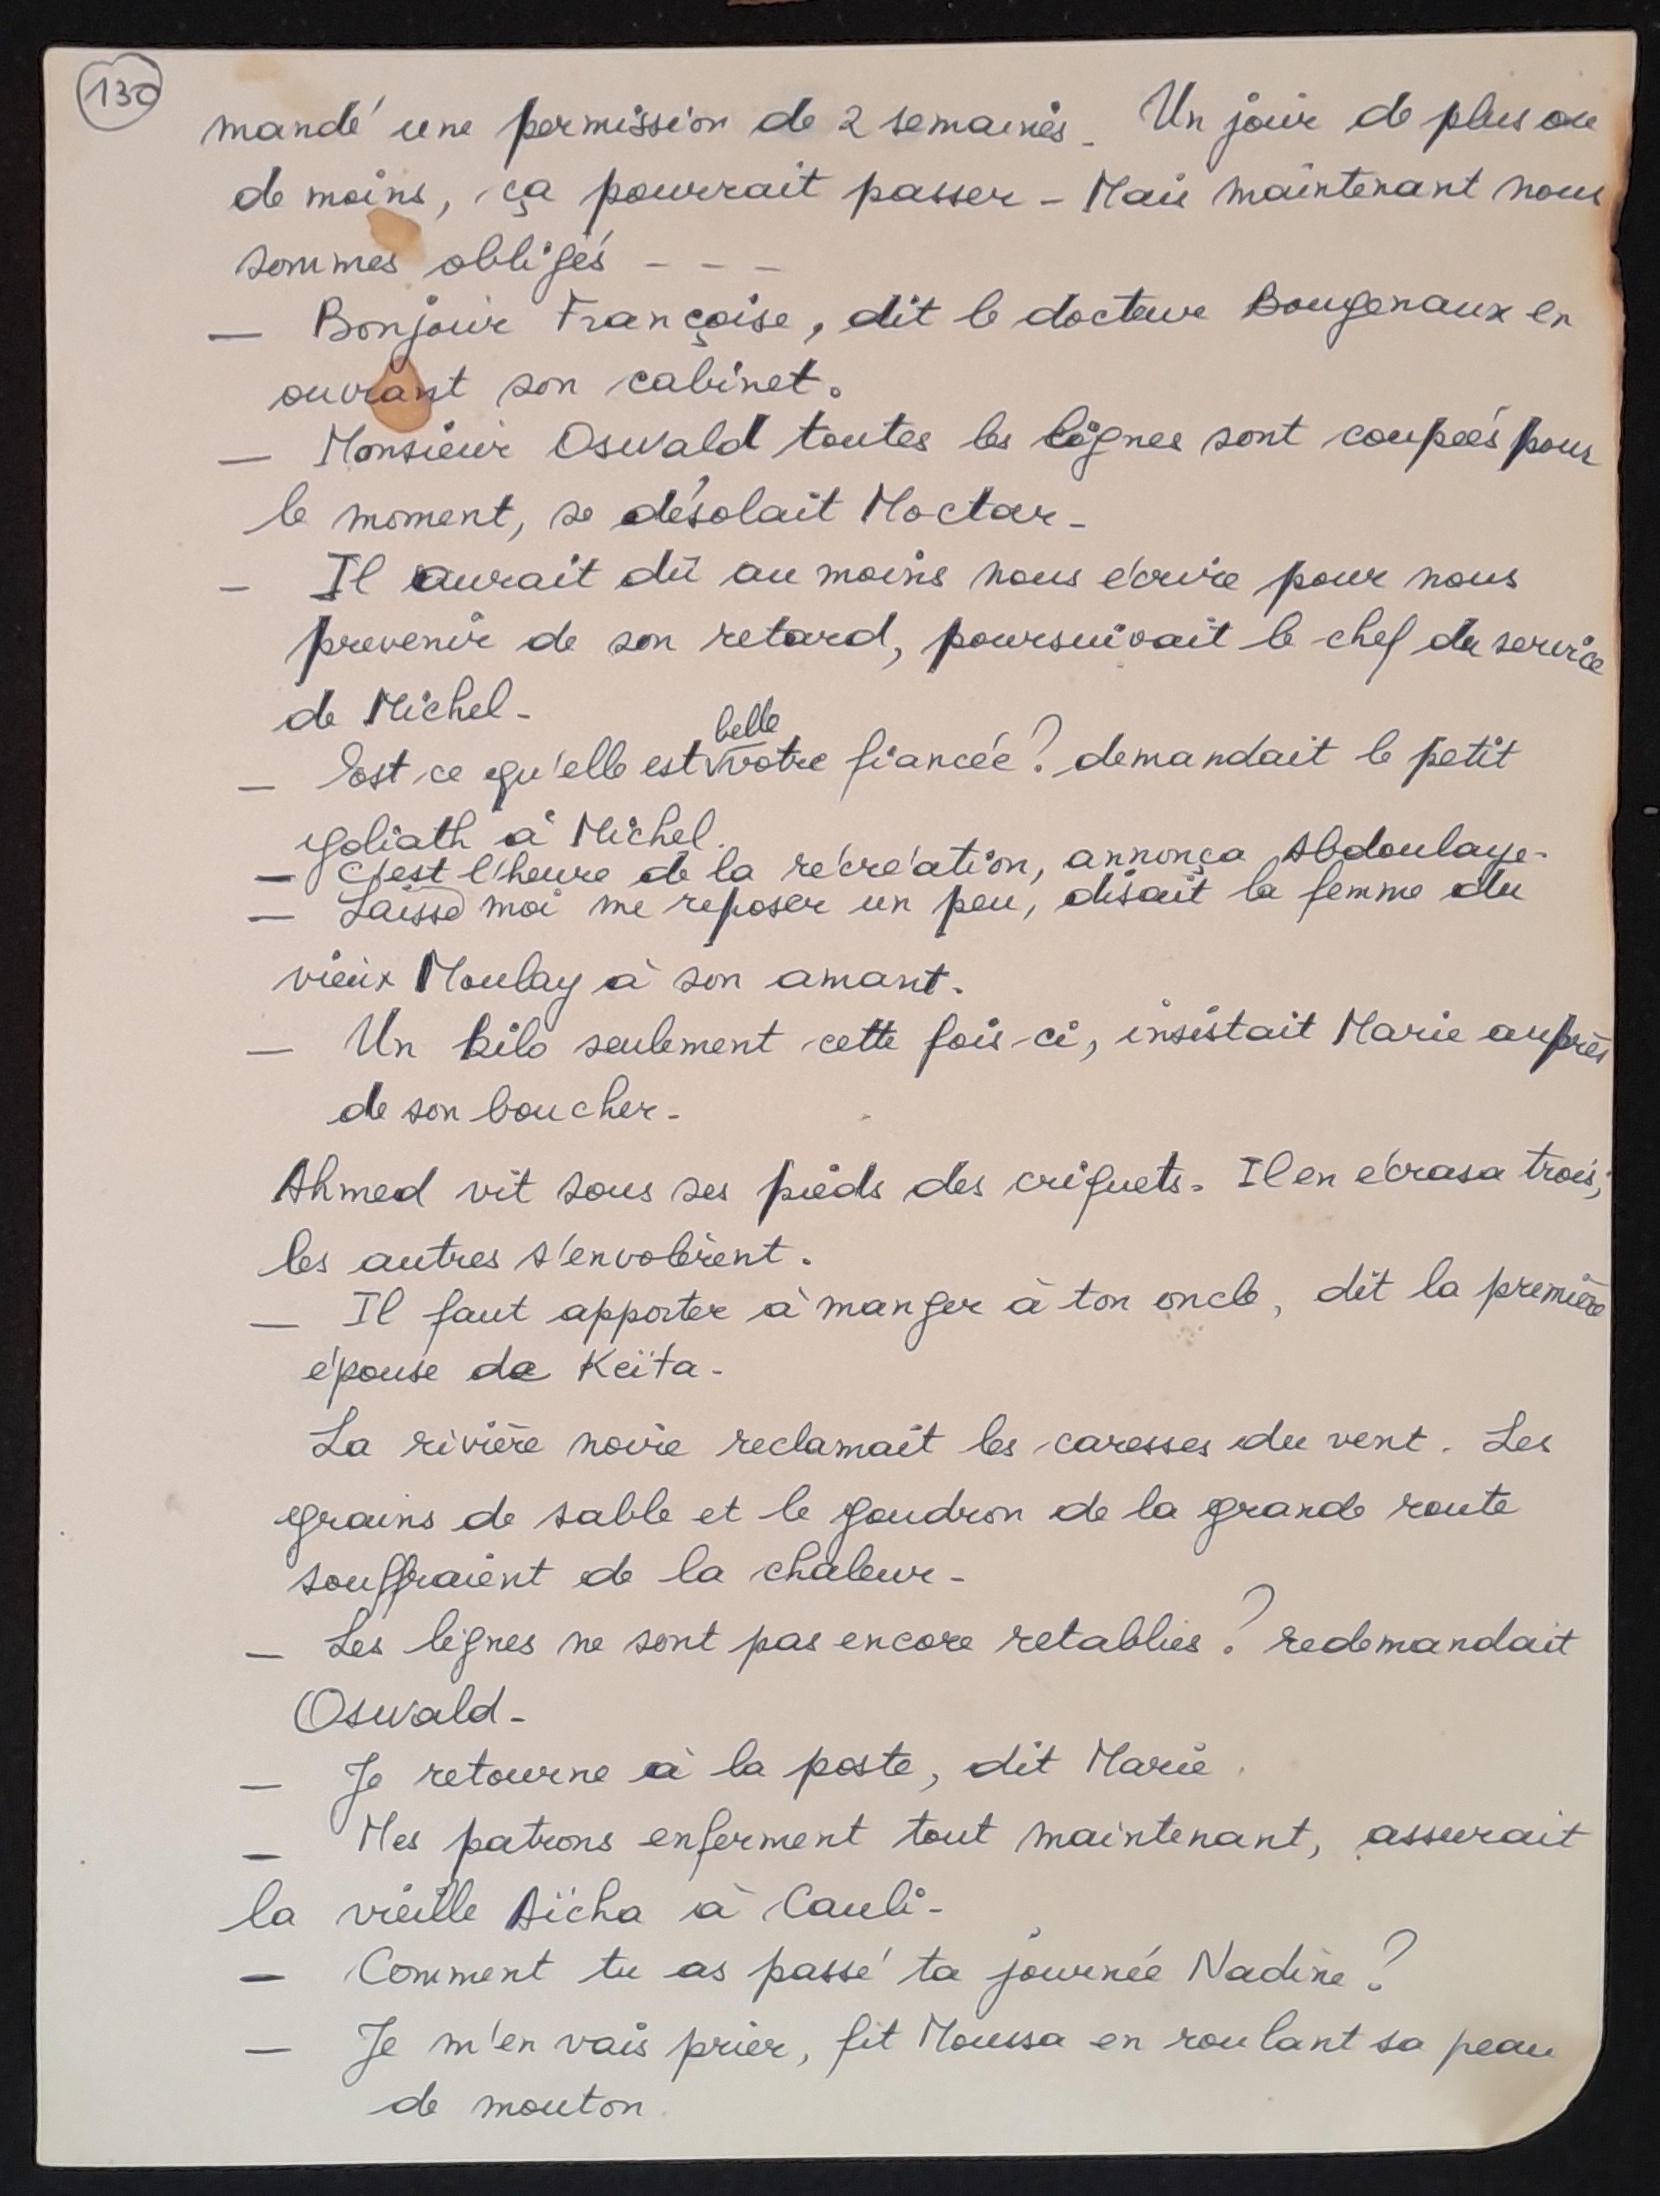 130
mandé une permission de 2 semaines - Un jour de plus ou
de moins, ça pourrait passer - Mais maintenant nous
sommes obligés - - -
— Bonjour Françoise, dit le docteur Bougenaux en
ouvrant son cabinet.
— Monsieur Oswald toutes les lignes sont coupées pour
le moment, se désolait Moctar -
— Il aurait dû au moins nous écrire pour nous
prevenir de son retard, poursuivait le chef du service
de Michel -
— Est ce qu'elle est belle votre fiancée ? demandait le petit
goliath à Michel.
— C'est l'heure de la récréation, annonça Abdoulaye -
— Laisse moi me reposer un peu, disait la femme du
vieux Moulay à son amant.
— Un kilo seulement cette fois-ci, insistait Marie auprès
de son boucher -
Ahmed vit sous ses pieds des criquets. Il en écrasa trois;
les autres s'envolèrent.
— Il faut apporter à manger à ton oncle, dit la première
épouse de Keïta -
La rivière noire reclamait les caresses du vent. Les
grains de sable et le goudron de la grande route
souffraient de la chaleur -
— Les lignes ne sont pas encore retablies ? redemandait
Oswald -
— Je retourne à la poste, dit Marie.
— Mes patrons enferment tout maintenant, assurait
la vieille Aïcha à Cauli -
— Comment tu as passé ta journée Nadine ?
— Je m'en vais prier, fit Moussa en roulant sa peau
de mouton